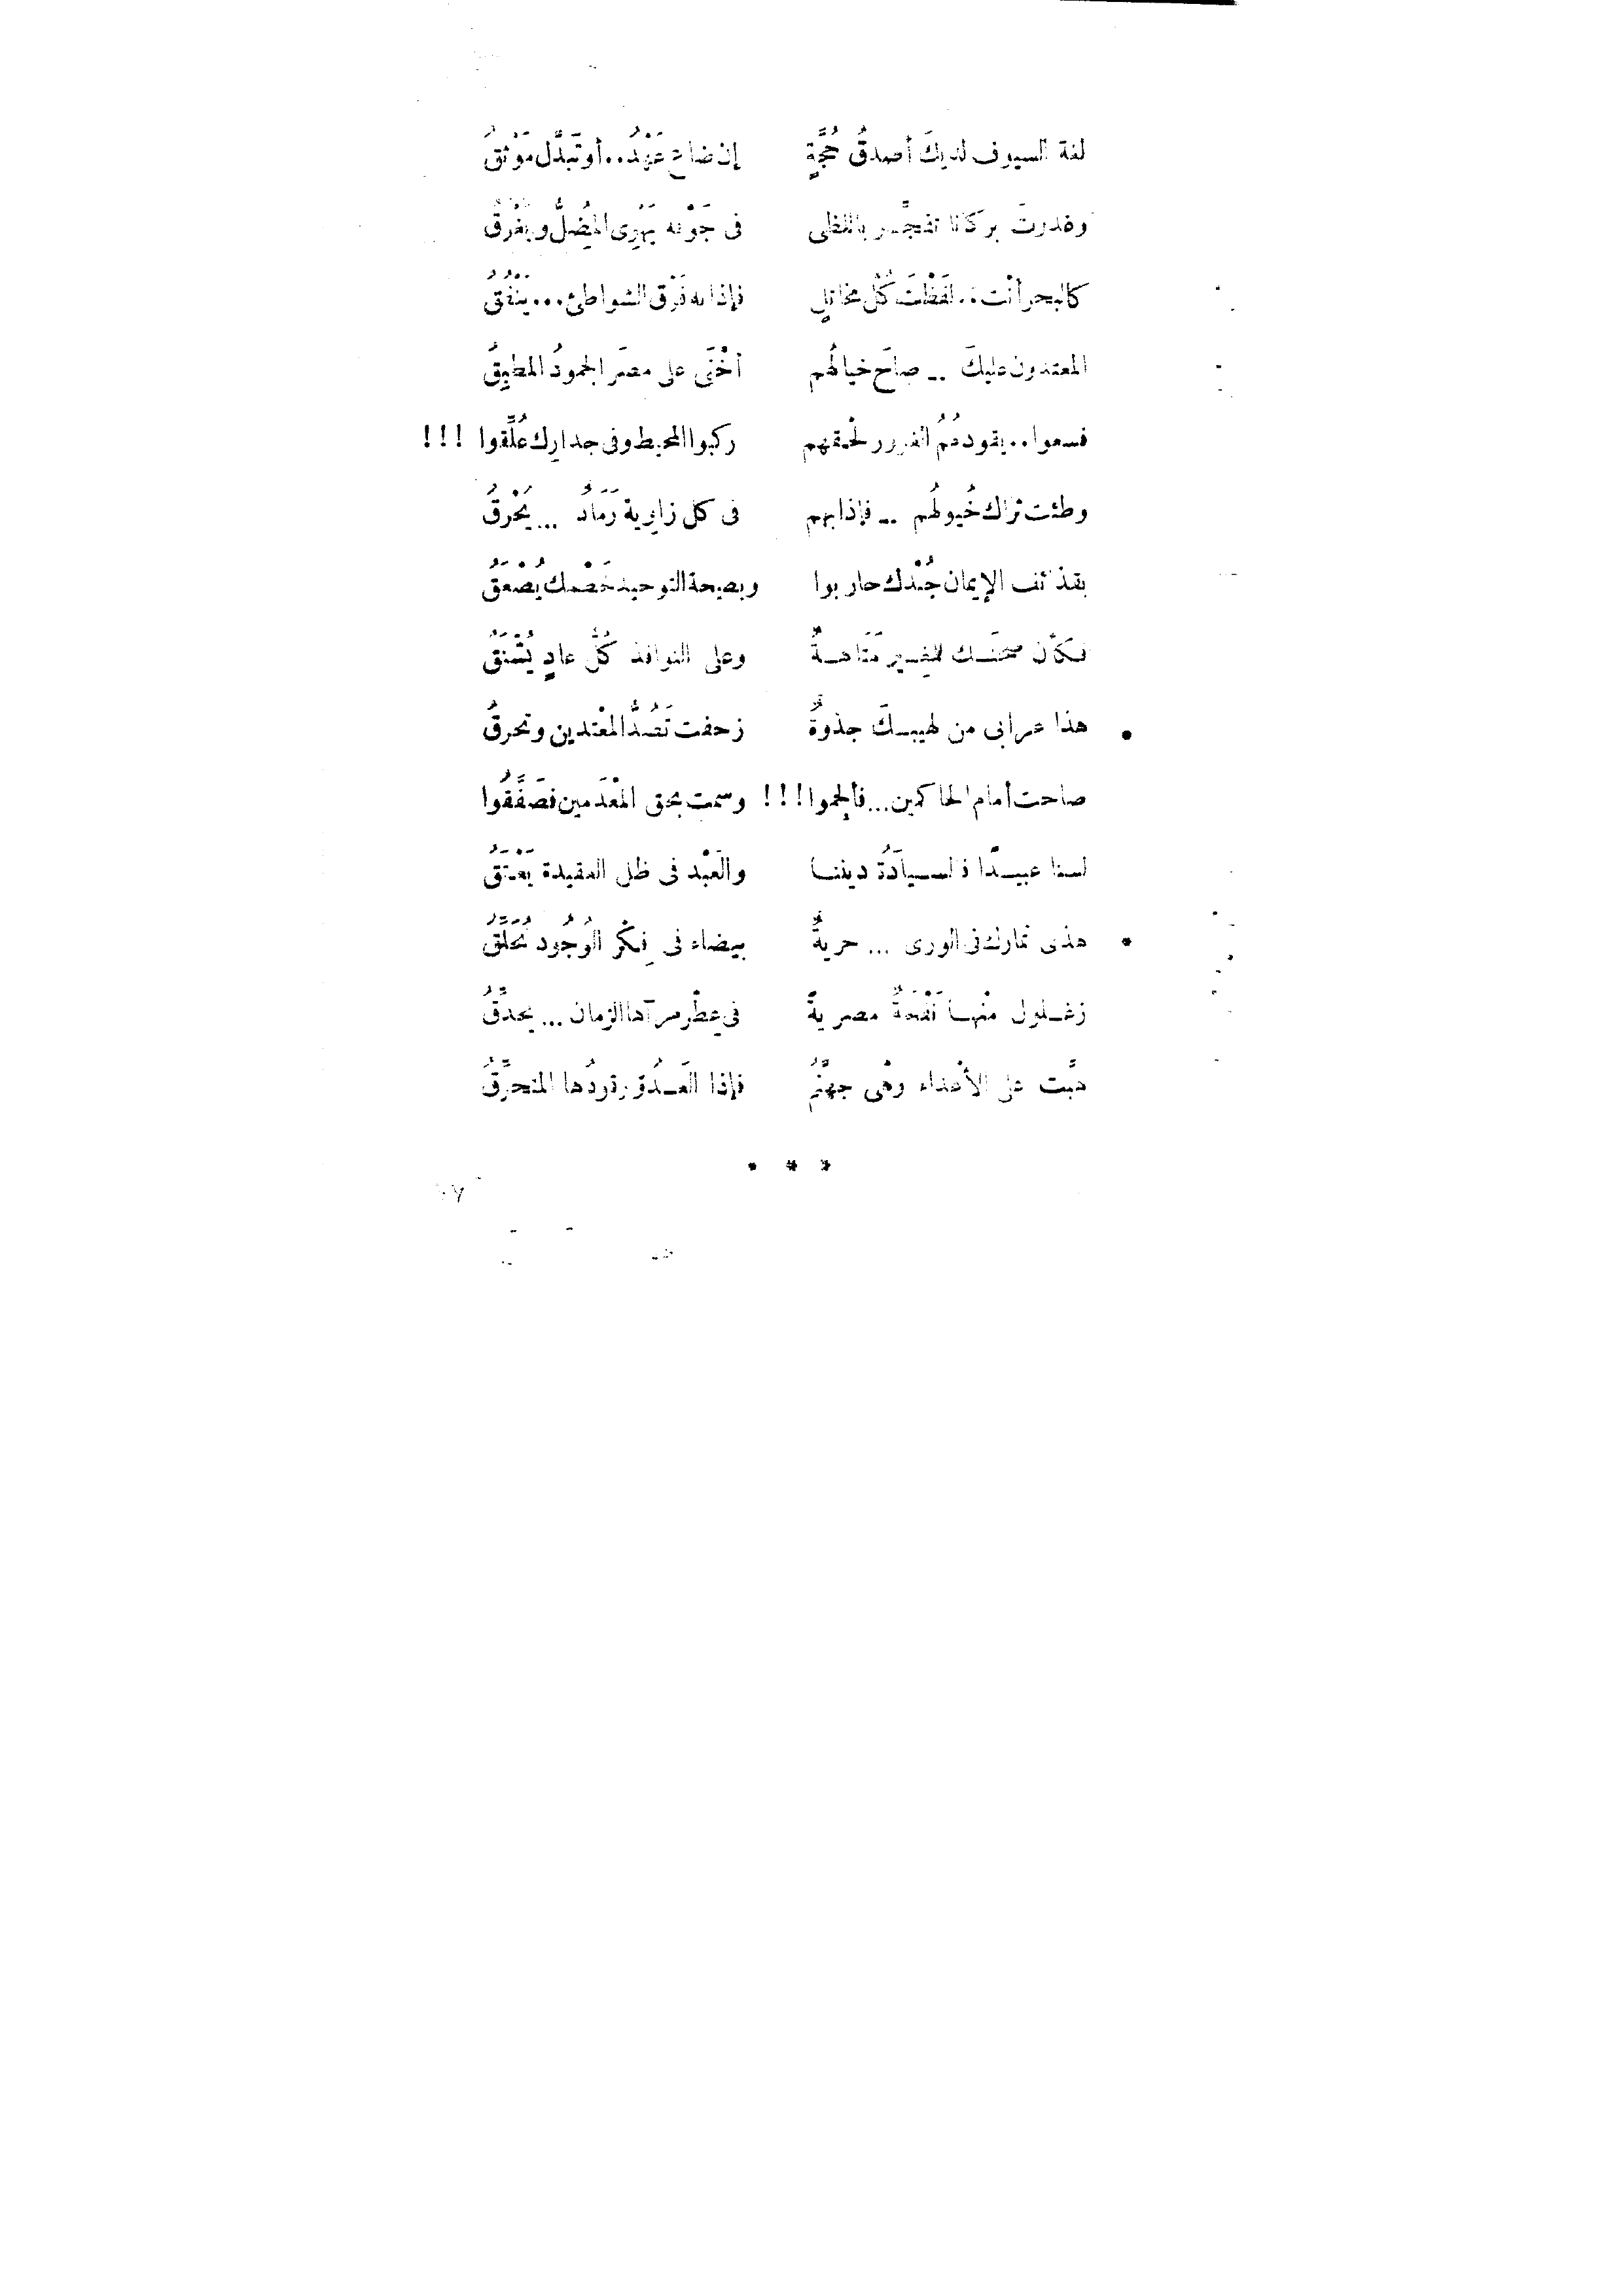 لغة السيوف لديكَ أصدقُ حُجَّةٍ إن ضاع عَهْدٌ.. أو تَبدَّل مَوْثقُ
وغدوتَ بركانا تفجَّر باللظى فى جَوْفه يَهْوِى المُضِلُّ ويَغْرَقُ
كالبحر أنْت.. لَفَظْتَ كُلَّ مخاتلٍ فإذا به فَوْق الشواطئ... يَنْفُقُ
المعتدون عليكَ .. صاحَ خيالهُم أخْنَى على مصرَ الجمودُ المطبِقُ
فسعوا.. يقودهُمُ الغرور لحتفهم ركبوا المحيط وفى جدارِك عُلِّقوا !!!
وطئت ثراك خُيولهُم .. فإذا بهم فى كل زاوية رَمَادٌ ... يُحْرقُ
بقذائف الإيمان جُنْدك حاربوا وبصيحة التوحيد خَصْمك يُصْعَقُ
فكأن صحنَك للمغير مَتَاهةٌ وعلى النوافذ كُلُّ عادٍ يُشْنَقُ
• هذا عرابى من لهيبكَ جذوةٌ زحفت تَصُدُّ المعْتدين وتحرقُ
صاحت أمام الحاكمين... فألجموا !!! وسمت بحق المعْدَمين فصَفَّقُوا
لسنا عبيدًا فالسيادَةُ ديننا والعَبْد فى ظل العقيدة يَعْتَقُ
* هذى ثمارك فى الورى ... حريةٌ بيضاء فى فِكْر الوُجُود تُحَلِّقُ
زغلول منْها نَفْحَةٌ مصريةٌ فى عِطْر مرآها الزمان ... يحدِّقُ
هبَّت على الأعداء وهْى جهنَّمٌ فإذا العَدُو وقودُها المتحرِّقُ
* * *